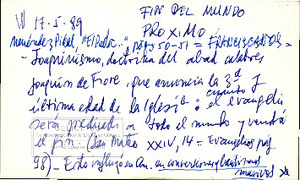 17-I-89 FIN DEL MUNDO
PROXIMO
Menéndez Pidal, "El P. Las " pgs 50-51 = FRANCISCANOS =
- Joaquinismo, doctrina del abad calabrés
Joaquín de Fiore, que anuncia la 3ª y
última edad de la Iglesia: cuando el evangelio
será predicado a todo el mundo y vendrá
el fin (San Mateo XXIV, 14 = Evangelios pág
98) - Esto influyó en en conversiones y bautismos
masivos